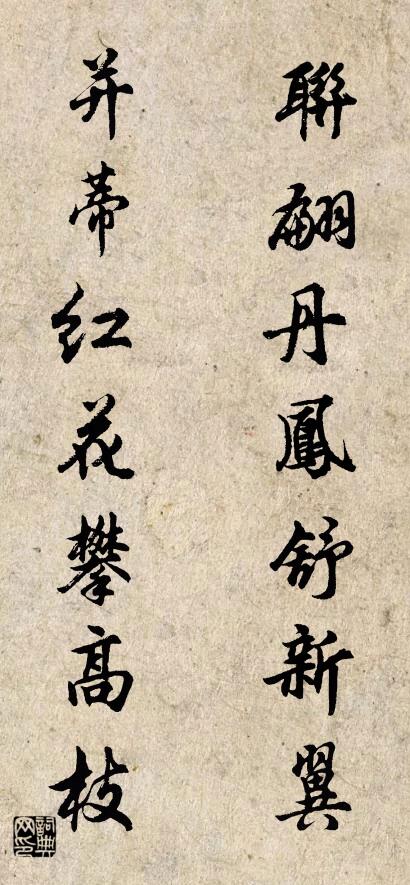 聯翩丹鳳舒新翼
并蒂红花攀高枝
詞典网印